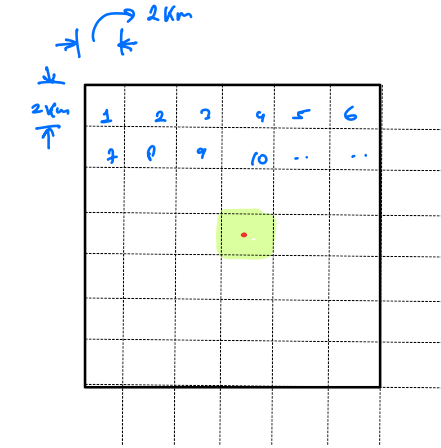 2 Km
2 Km
1 2 3 4 5 6
7 8 9 10 .. ..